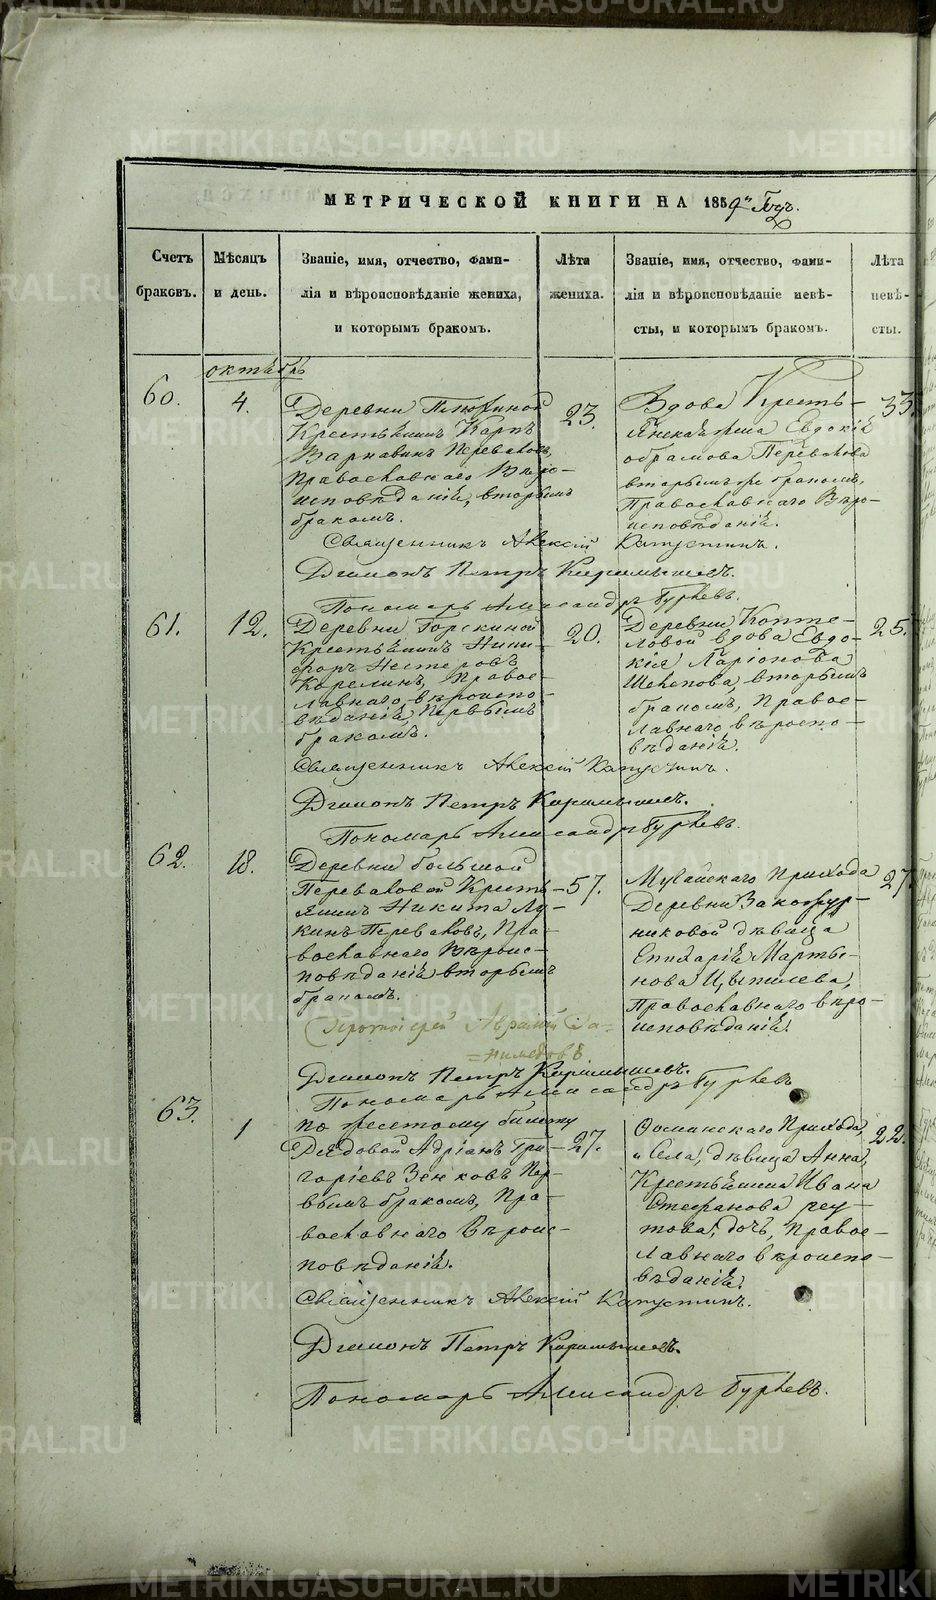 METRIKI.GASO-URAL.RU
МЕТРИЧЕСКОЙ КНИГИ НА 1859й Годъ.
Счетъ браковъ.
Мѣсяцъ и день.
Званіе, имя, отчество, фами-
лія и вѣроисповѣданіе жениха,
и которымъ бракомъ.
Лѣта жениха.
Званіе, имя, отчество, фами-
лія и вѣроисповѣданіе невѣ-
сты, и которымъ бракомъ.
Лѣта невѣ-
сты.
октябрь
60.
4.
Деревни
Крестьянинъ Карпъ
Варнавинъ Перваковъ,
Православнаго Вѣро-
исповѣданій, вторымъ
бракомъ.
23.
Вдова Кресть-
янская жена Евдокія
Абрамова Первакова
вторымъ же бракомъ,
Православнаго Вѣро-
исповѣданій.
33.
Священникъ Алексій Капустинъ.
Діаконъ Петръ Карамышевъ.
Пономарь Александръ Гурьевъ.
61.
12.
Деревни Горскиной
Крестьянинъ Ники-
форъ Нестеровъ
Карелинъ, Право-
лавнаго вѣроиспо-
вѣданій, Первымъ
бракомъ.
20.
Деревни Копте-
ловой вдова Евдо-
кія Ларіонова
вторымъ
бракомъ, Право-
лавнаго вѣроиспо-
вѣданій.
25.
Священникъ Алексій Капустинъ.
Діаконъ Петръ Карамышевъ.
Пономарь Александръ Гурьевъ.
62.
18.
Деревни большой
Перваковой Кресть-
янинъ Никита Лу-
кинъ Перваковъ, Пра-
вославнаго Вѣроис-
повѣданій вторымъ
бракомъ.
57.
Мугайскаго Прихода
Деревни
никовой дѣвица
Епихарія Марты-
нова
Православнаго вѣро-
исповѣданій.
27.
Протоіерей
Діаконъ Петръ Карамышевъ.
Пономарь Александръ Гурьевъ
63.
1
по желтому билету
Рядовой Адріанъ Гри-
горіевъ Зенковъ Пер-
вымъ бракомъ, Пра-
вославнаго Вѣроис-
повѣданій.
27.
Прихода,
и Села, дѣвица Анна,
Крестьянина Ивана
Стефанова Реу-
това, дочь, Право-
лавнаго вѣроиспо-
вѣданій.
22.
Священникъ Алексій Капустинъ.
Діаконъ Петръ Карамышевъ.
Пономарь Александръ Гурьевъ.